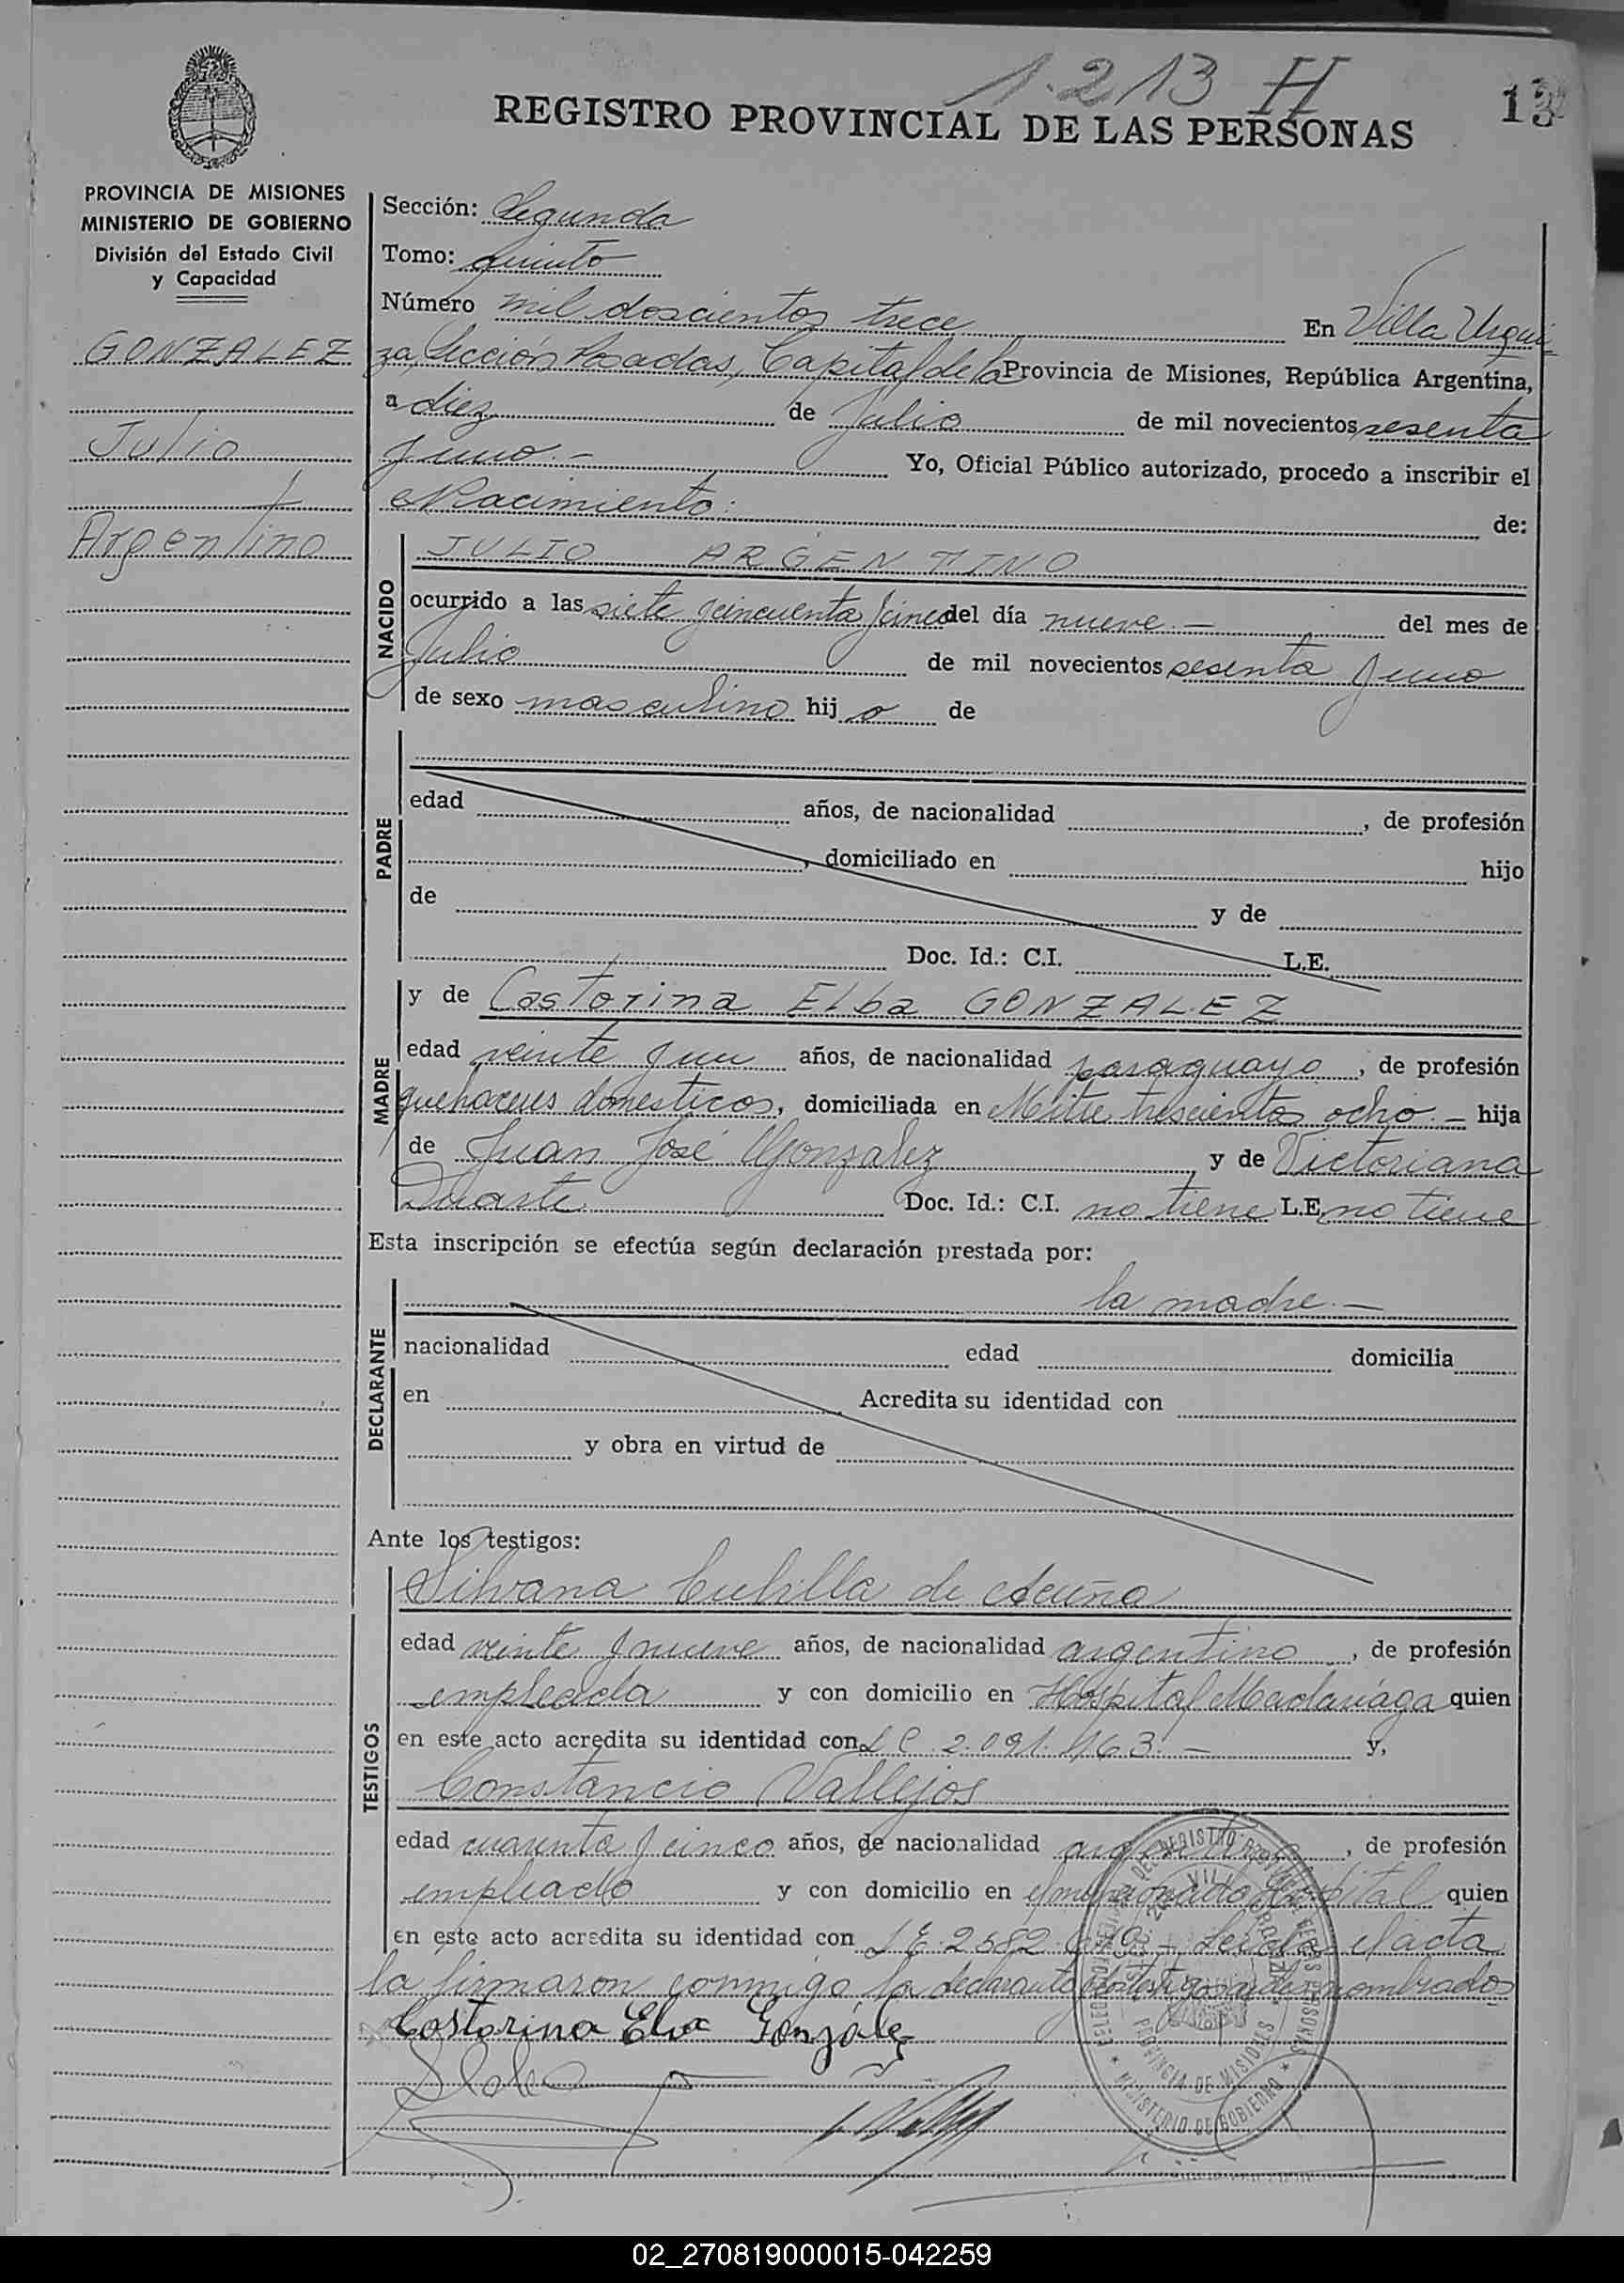 1.213 H
REGISTRO PROVINCIAL DE LAS PERSONAS
13
PROVINCIA DE MISIONES
MINISTERIO DE GOBIERNO
División del Estado Civil
y Capacidad
GONZALEZ
Julio
Argentino
Sección: Segunda
Tomo: quinto
Número mil doscientos trece En Villa Urqui
za, Sección Posadas, Capital de la Provincia de Misiones, República Argentina,
a diez de Julio de mil novecientos sesenta
y uno.- Yo, Oficial Público autorizado, procedo a inscribir el
Nacimiento: de:
NACIDO
JULIO ARGENTINO
ocurrido a las siete y cincuenta y cinco del día nueve.- del mes de
Julio de mil novecientos sesenta y uno
de sexo masculino hijo de
PADRE
edad años, de nacionalidad , de profesión
, domiciliado en hijo
de y de
Doc. Id.: C.I. L.E.
MADRE
y de Castorina Elba GONZALEZ
edad veinte y un años, de nacionalidad paraguaya, de profesión
quehaceres domesticos, domiciliada en Mitre trescientos ocho.- hija
de Juan José Gonzalez y de Victoriana
Duarte Doc. Id.: C.I. no tiene L.E. no tiene
Esta inscripción se efectúa según declaración prestada por:
DECLARANTE
la madre.-
nacionalidad edad domicilia
en Acredita su identidad con
y obra en virtud de
Ante los testigos:
TESTIGOS
Silvana Cubilla de Acuña
edad veinte y nueve años, de nacionalidad argentina, de profesión
empleada y con domicilio en Hospital Madariaga quien
en este acto acredita su identidad con L C 2.091.163.- y,
Constancio Vallejos
edad cuarenta y cinco años, de nacionalidad argentino, de profesión
empleado y con domicilio en el mencionado Hospital quien
en este acto acredita su identidad con L E 2582 - Leida el acta
la firmaron conmigo la declarante y los testigos nombrados
Castorina Elva González
REGISTRO PROVINCIAL DE LAS PERSONAS
VILLA URQUIZA
PROVINCIA DE MISIONES
* MINISTERIO DE GOBIERNO *
02_270819000015-042259